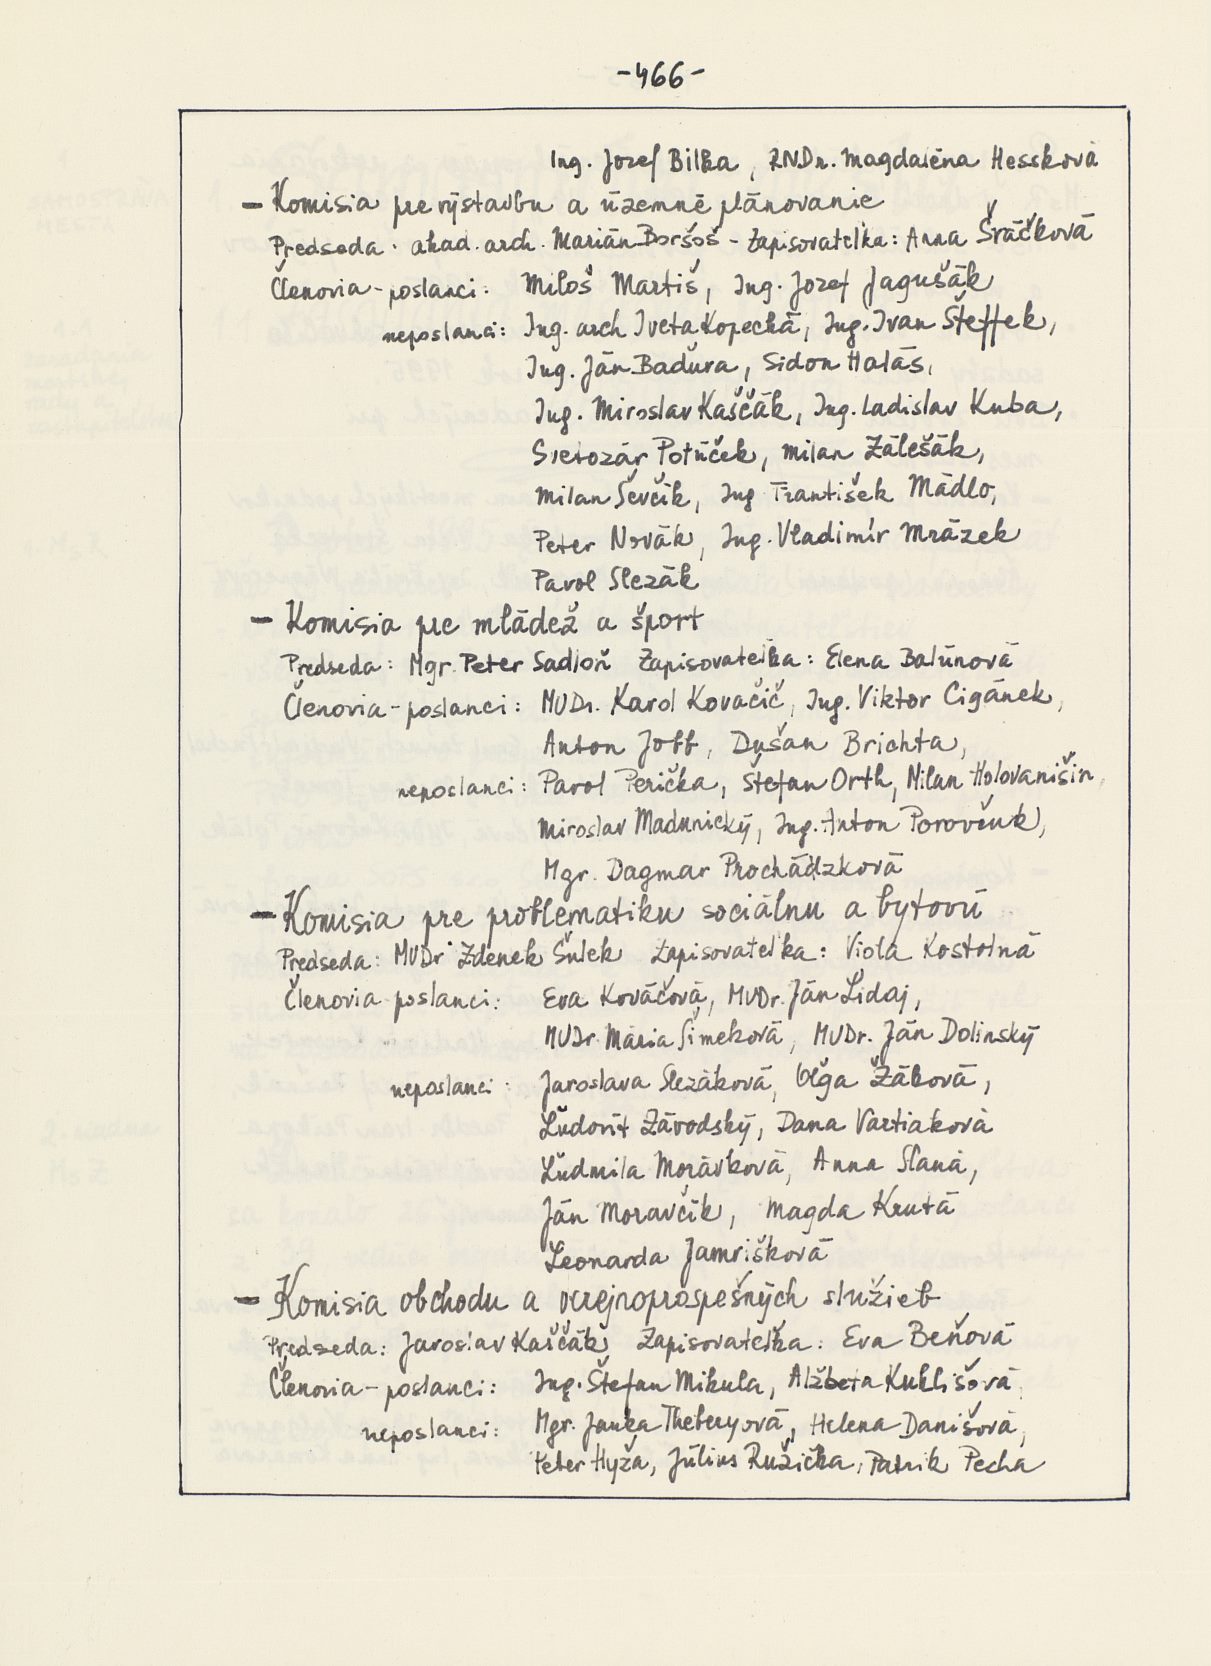 -466-
Ing. Jozef Bilka, RNDr. Magdaléna Hessková
- Komisia pre výstavbu a územné plánovanie
Predseda: akad. arch. Marián Boršoš - Zapisovateľka: Anna Šráčková
Členovia - poslanci: Miloš Martiš, Ing. Jozef Jagušák
neposlanci: Ing. arch Iveta Kopecká, Ing. Ivan Šteffek,
Ing. Ján Baďura, Sidon Halás,
Ing. Miroslav Kaščák, Ing. Ladislav Kuba,
Svetozár Potúček, Milan Zálešák,
Milan Ševčík, Ing František Mádlo,
Peter Novák, Ing. Vladimír Mrázek
Pavol Slezák
- Komisia pre mládež a šport
Predseda: Mgr. Peter Sadloň Zapisovateľka: Elena Balúnová
Členovia - poslanci: MUDr. Karol Kovačič, Ing. Viktor Cigánek,
Anton Jobb, Dušan Brichta,
neposlanci: Pavol Perička, Štefan Orth, Milan Holovanišin,
Miroslav Madunický, Ing. Anton Porovčuk,
Mgr. Dagmar Prochádzková
- Komisia pre problematiku sociálnu a bytovú
Predseda: MUDr Zdenek Šulek Zapisovateľka: Viola Kostolná
Členovia poslanci: Eva Kováčová, MUDr. Ján Lidaj,
MUDr. Mária Šimeková, MUDr. Ján Dolinský
neposlanci: Jaroslava Slezáková, Oľga Žáková,
Ľudovít Závodský, Dana Vartiaková
Ľudmila Morávková, Anna Slaná,
Ján Moravčík, Magda Krutá
Leonarda Jamrišková
- Komisia obchodu a verejnoprospešných služieb
Predseda: Jaroslav Kaščák Zapisovateľka: Eva Beňová
Členovia - poslanci: Ing. Štefan Mikula, Alžbeta Kuklišová
neposlanci: Mgr. Janka Theberyová, Helena Danišová,
Peter Hyža, Július Ružička, Patrik Pecha